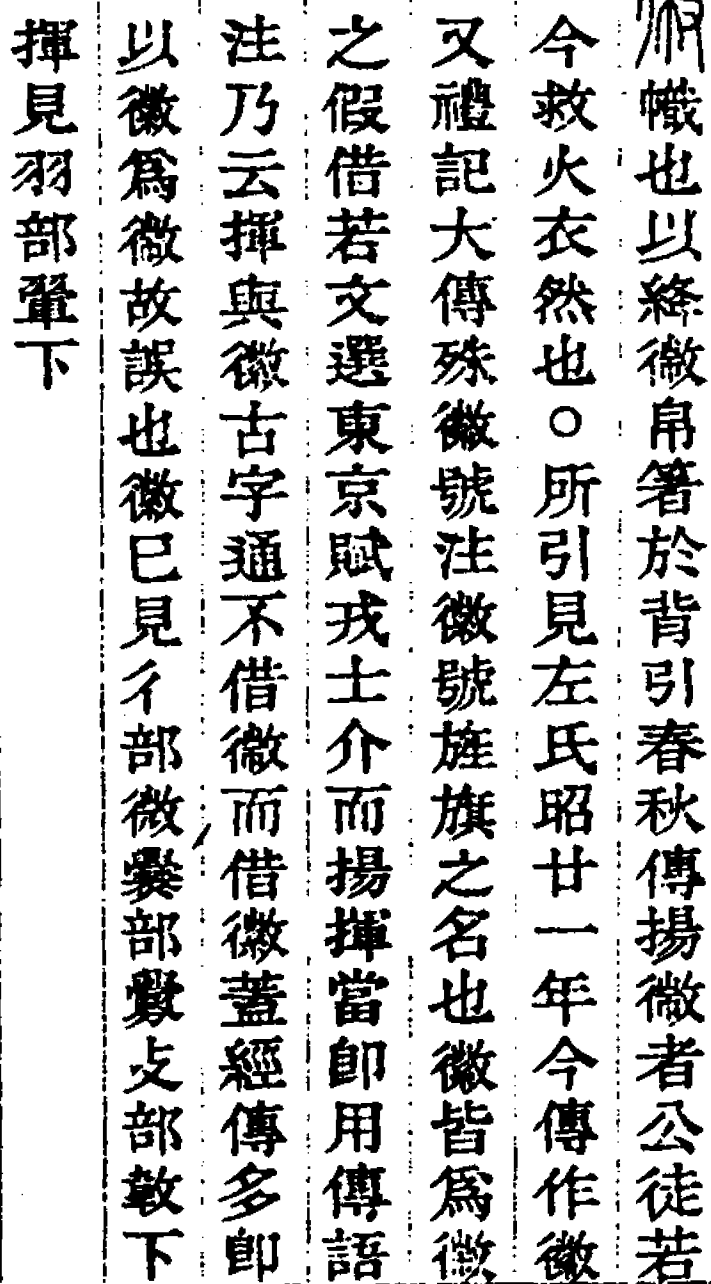 幟也以絳幑帛箸於背引春秋傳揚幑者公徒若
今救火衣然也○所引見左氏昭廿一年今傳作徽
又禮記大傳殊徽號注徽號旌旗之名也徽皆爲幑
之假借若文選東京賦戎士介而揚揮當卽用傳語
注乃云揮與徽古字通不借幑而借徽蓋經傳多卽
以徽爲幑故誤也徽巳見彳部微爨部釁攴部下
揮見羽部翬下